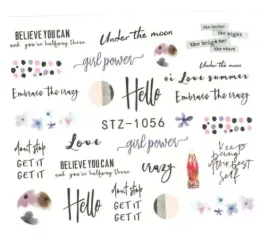 BELIEVE YOU CAN
and you're halfway there
Under the moon
the darker
the night
the brighter
the stars
girl power
Under the moon
i Love summer
Embrace the crazy
Hello
Embrace the crazy
STZ-1056
Love
girl power
don't stop
GET IT
GET IT
BELIEVE YOU CAN
and you're halfway there
crazy
Keep
being
your
best
self
Hello
don't stop
GET IT
GET IT